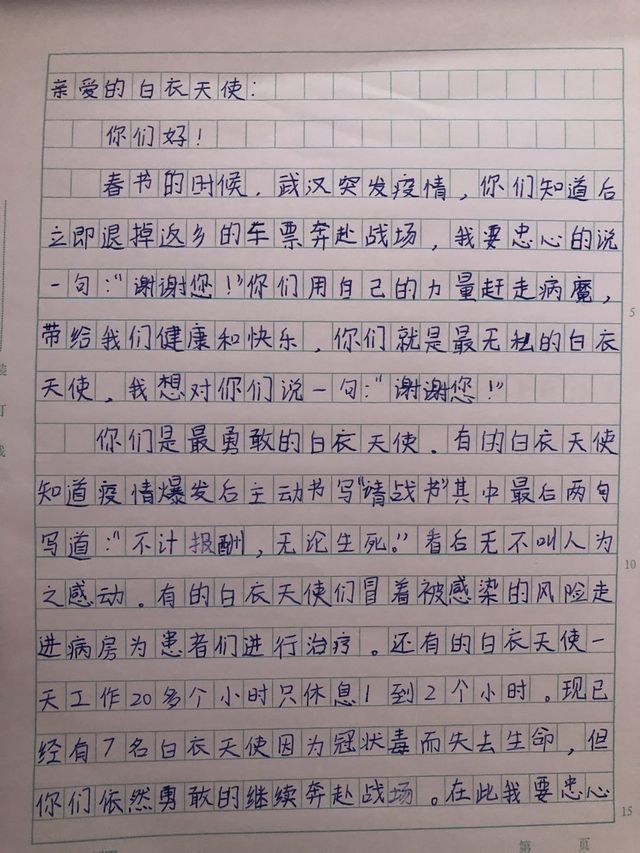 亲爱的白衣天使：
你们好！
春书的时候，武汉突发疫情，你们知道后
立即退掉返乡的车票奔赴战场，我要忠心的说
一句：“谢谢您！”你们用自己的力量赶走病魔，
带给我们健康和快乐，你们就是最无私的白衣
天使，我想对你们说一句：“谢谢您！”
你们是最勇敢的白衣天使．有的白衣天使
知道疫情爆发后主动书写“请战书”其中最后两句
写道：“不计报酬，无论生死。”看后无不叫人为
之感动。有的白衣天使们冒着被感染的风险走
进病房为患者们进行治疗。还有的白衣天使一
天工作20多个小时只休息1到2个小时。现已
经有7名白衣天使因为冠状毒而失去生命，但
你们依然勇敢的继续奔赴战场。在此我要忠心
5
10
15
第 页
装
订
线